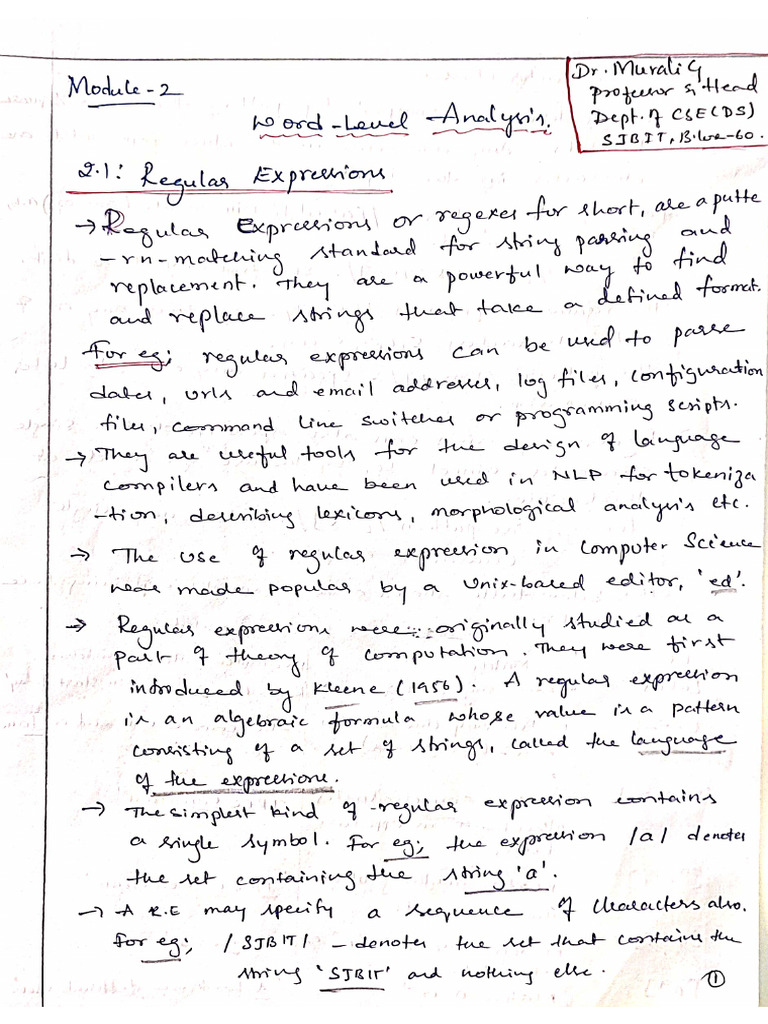 Module-2
Dr. Murali G
Professor & Head
Dept. of CSE(DS)
SJBIT, B'lore-60.
Word-Level Analysis.
2.1: Regular Expressions
→ Regular Expressions or regexes for short, are a patte
-rn-matching standard for string parsing and
replacement. They are a powerful way to find
and replace strings that take a defined format.
For eg; regular expressions can be used to parse
dates, urls and email addresses, log files, configuration
files, command line switches or programming scripts.
→ They are useful tools for the design of language
compilers and have been used in NLP for tokeniza
-tion, describing lexicons, morphological analysis etc.
→ The use of regular expression in Computer Science
was made popular by a Unix-based editor, 'ed'.
→ Regular expressions were originally studied as a
part of theory of computation. They were first
introduced by Kleene (1956). A regular expression
is an algebraic formula whose value is a pattern
consisting of a set of strings, called the language
of the expressions.
→ The simplest kind of regular expression contains
a single symbol. For eg; the expression /a/ denotes
the set containing the string 'a'.
→ A R.E may specify a sequence of characters also.
For eg; /SJBIT/ - denotes the set that contains the
string 'SJBIT' and nothing else.
1